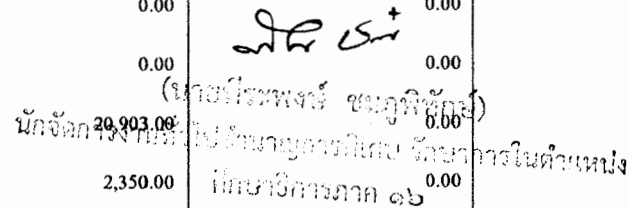 0.00 0.00
0.00 0.00
(นายพีระพงษ์
20,903.00 0.00
นักจัดการงานทั่วไปชำนาญการพิเศษ รักษาการในตำแหน่ง
2,350.00 0.00
ศึกษาธิการภาค ๑๖